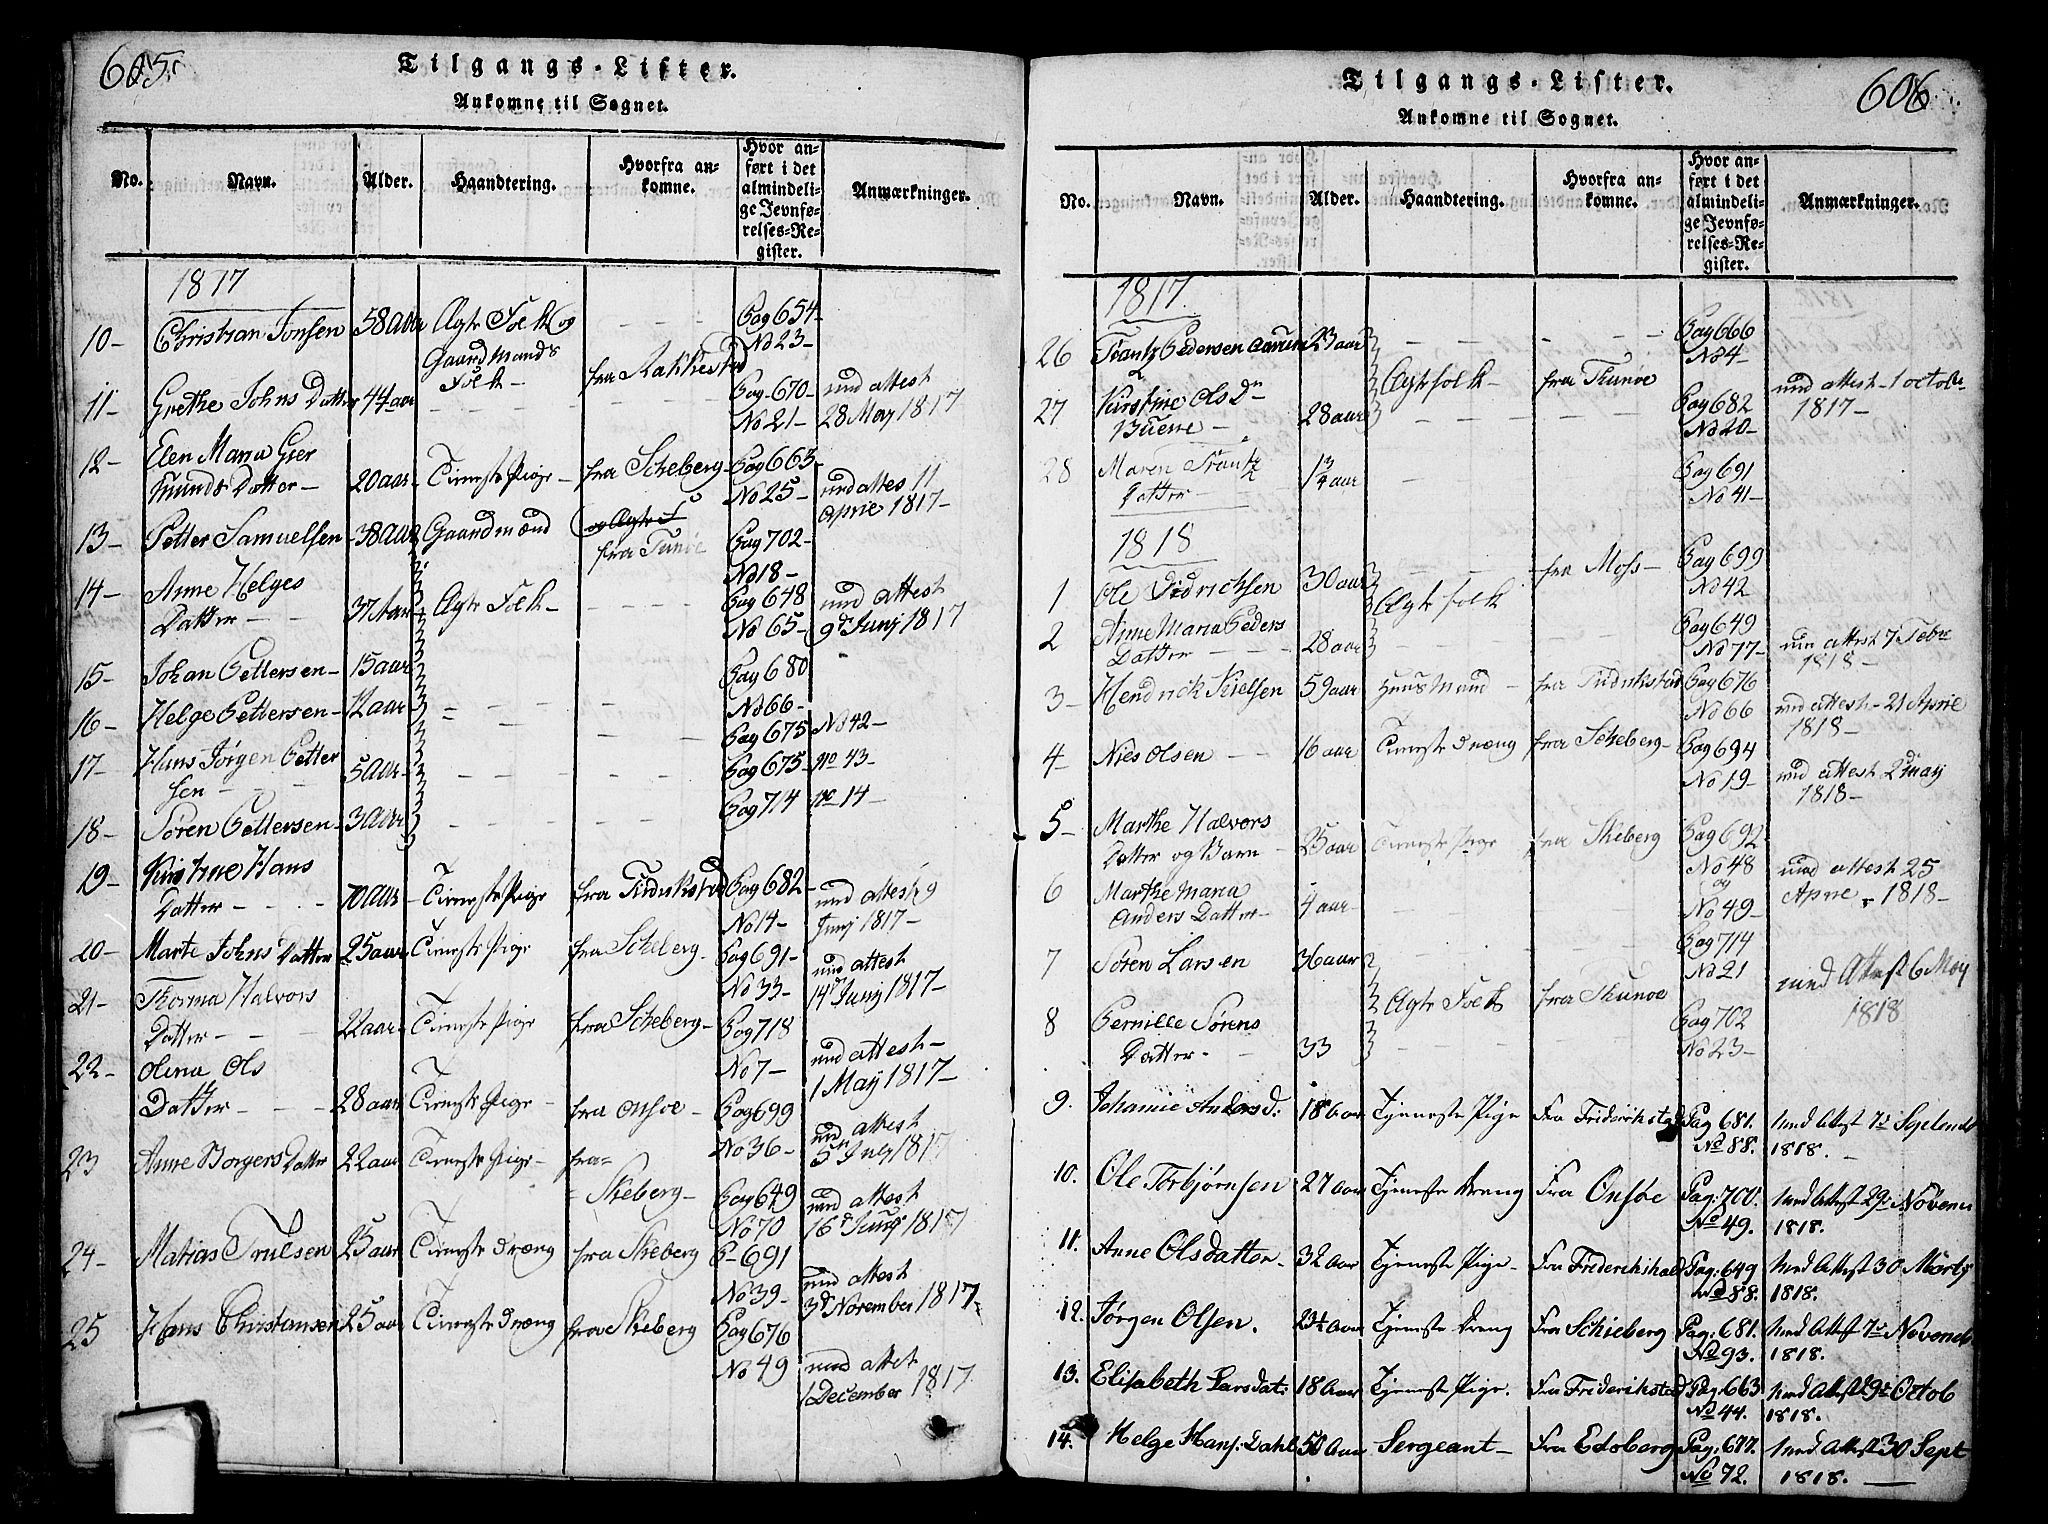 605
Tilgangs-Lister.
Ankomne til Sognet.
No. Navn. Alder. Haandtering. Hvorfra ankomne. Hvor anført i det almindelige Jevnførelses-Register. Anmærkninger.
1817
10- Christian Jonsen 58 aar Ægte Folk og - - - Pag 654- No 23-
Gaardmands Folk- fra Rakkestad
11- Grethe Johns Datter 44 aar - - - Pag-670- No 21- med attest 28 May 1817
12- Elen Maria Gier
Knuds Datter- 20 aar- Tieneste Pige- fra Scheberg- Pag 663- No 25- med attes 11 Aprie 1817-
13- Petter Samuelsen- 38 aar Gaardmænd og Ægte F
fra Tunøe Pag 702- No 18-
14- Anne Helges
Datter - - 37 aar- Ægte Folk- - - - - Pag 648 No 65- med attest 9d Junj 1817
15- Johan Pettersen- 15 aar Pag 680 No 66-
16- Helge Pettersen- 12 aar - - - Pag 675 No 42-
17- Hans Jørgen Petter
sen - - - 5 aar- - - - Pag 675- No 43-
18- Søren Pettersen- 3 aar - - - Pag 714 No 14-
19- Kirstine Hans
Datter - - - 70 aar- Tieneste Pige fra Fridrikstad Pag 682- No 14- med attest 9 Junj 1817-
20- Marte Johns Datter 25 aar Tieneste Pige fra Scheberg- Pag 691- No 33- med attest 14d Junj 1817-
21- Thorina Halvors
Datter- - 22 aar- Tieneste Pige fra Scheberg- Pag 718 No 7- med attest- 1 May 1817-
22- Olena Ols
Datter- - - 28 aar Tieneste Pige- fra Onsøe- Pag 699 No 36- med attest 5 July 1817
23 Anne Borgers Datter 22 aar Tieneste Pige- fra-
Skeberg- Pag 649 No 70 med attest 16d Junj 1817
24- Matias Truelsen 25 aar Tieneste Dræng fra Skeberg P-691 No 39- med attest 3d November 1817-
25 Hans Christansen 25 aar Tieneste Dræng fra Skeberg Pag 676 No 49 med attet 1 December 1817
606
Tilgangs-Lister.
Ankomne til Sognet.
No. Navn. Alder. Haandtering. Hvorfra ankomne. Hvor anført i det almindelige Jevnførelses-Register. Anmærkninger.
1817
26 Frantz Pedersen 23 aar - - - - Pag 666 No 4-
Ægtefolk- fra Thunøe
27 Kirstine Ols Dn
Buerre - 28 aar - - - Pag 682 No 20- med attest-1 octobr 1817-
28 Maren Frantz
Datter - 1 3/4 aar - Pag 691 No 41-
1818
1 Ole Didrichsen 30 aar - - fra Moss- Pag 699 No 42
Ægtefolk
2 Anne Maria Peders
Datter - - - 28 aar - - Pag 649 No 77- med attest 7 Febr 1818-
3- Hendrick Nielsen 59 aar Huusmand- fra Fridrikstad Pag 676 No 66 med attest-21 Aprie 1818-
4- Nies Olsen - - 16 aar Tieneste Dræng fra Scheberg- Pag 694 No 19- med attest 2d May 1818-
5- Marthe Halvors
Datter og Barn- 25 aar Tieneste Pige fra Skeberg Pag 692 No 48 og No 49- med attest 25 Aprie 1818-
6 Marthe Maria
Anders Datter- 4 aar- - -
7 Søren Larsen 36 aar - - Pag 714 No 21 med Attest 6 May 1818
Ægte Folk fra Thunøe
8 Pernille Sørens
Datter- 33 - - Pag 702 No 23-
9. Johanne Anders d: 18 aar Tjeneste Pige Fra Friderikstad Pag 681. No 88. Med Attest 7d Septemb 1818. -
10. Ole Torbjørnsen 27 aar Tjeneste Dreng Fra Onsøe Pag: 700. No 49. Med Attest 29d Novem 1818.
11. Anne Olsdatter- 32 aar Tjeneste Pige- Fra Frederikshald Pag: 649 No 88. Med Attest 30 Martj 1818.
12. Jørgen Olsen. 24 aar Tjeneste Dreng Fra Schieberg Pag: 681. No 93. Med Attest 7d Novemb 1818.
13. Elisabeth Larsdat: 18 Aar Tjeneste Pige. Fra Frederikstad Pag: 663 No 44. Med Attest 29d Octob 1818.
14. Helge Hans: Dahl 50 Aar Sergeant- Fra Edsberg Pag: 677. No 72. Med Attest 30 Sept 1818. -